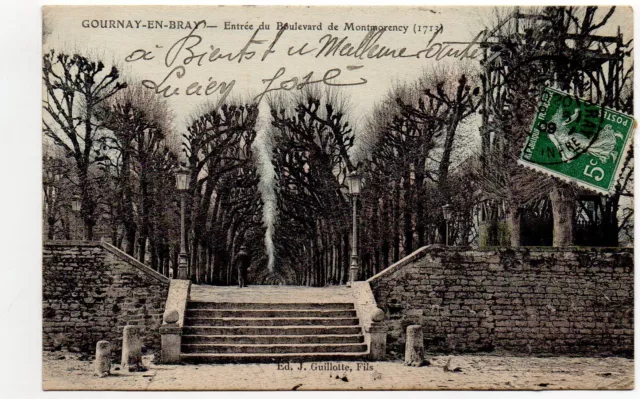 GOURNAY-EN-BRAY — Entrée du Boulevard de Montmorency (1713)
à Bientôt Meilleure Santé
Lucien José
POSTES
5c
Ed. J. Guillotte, Fils